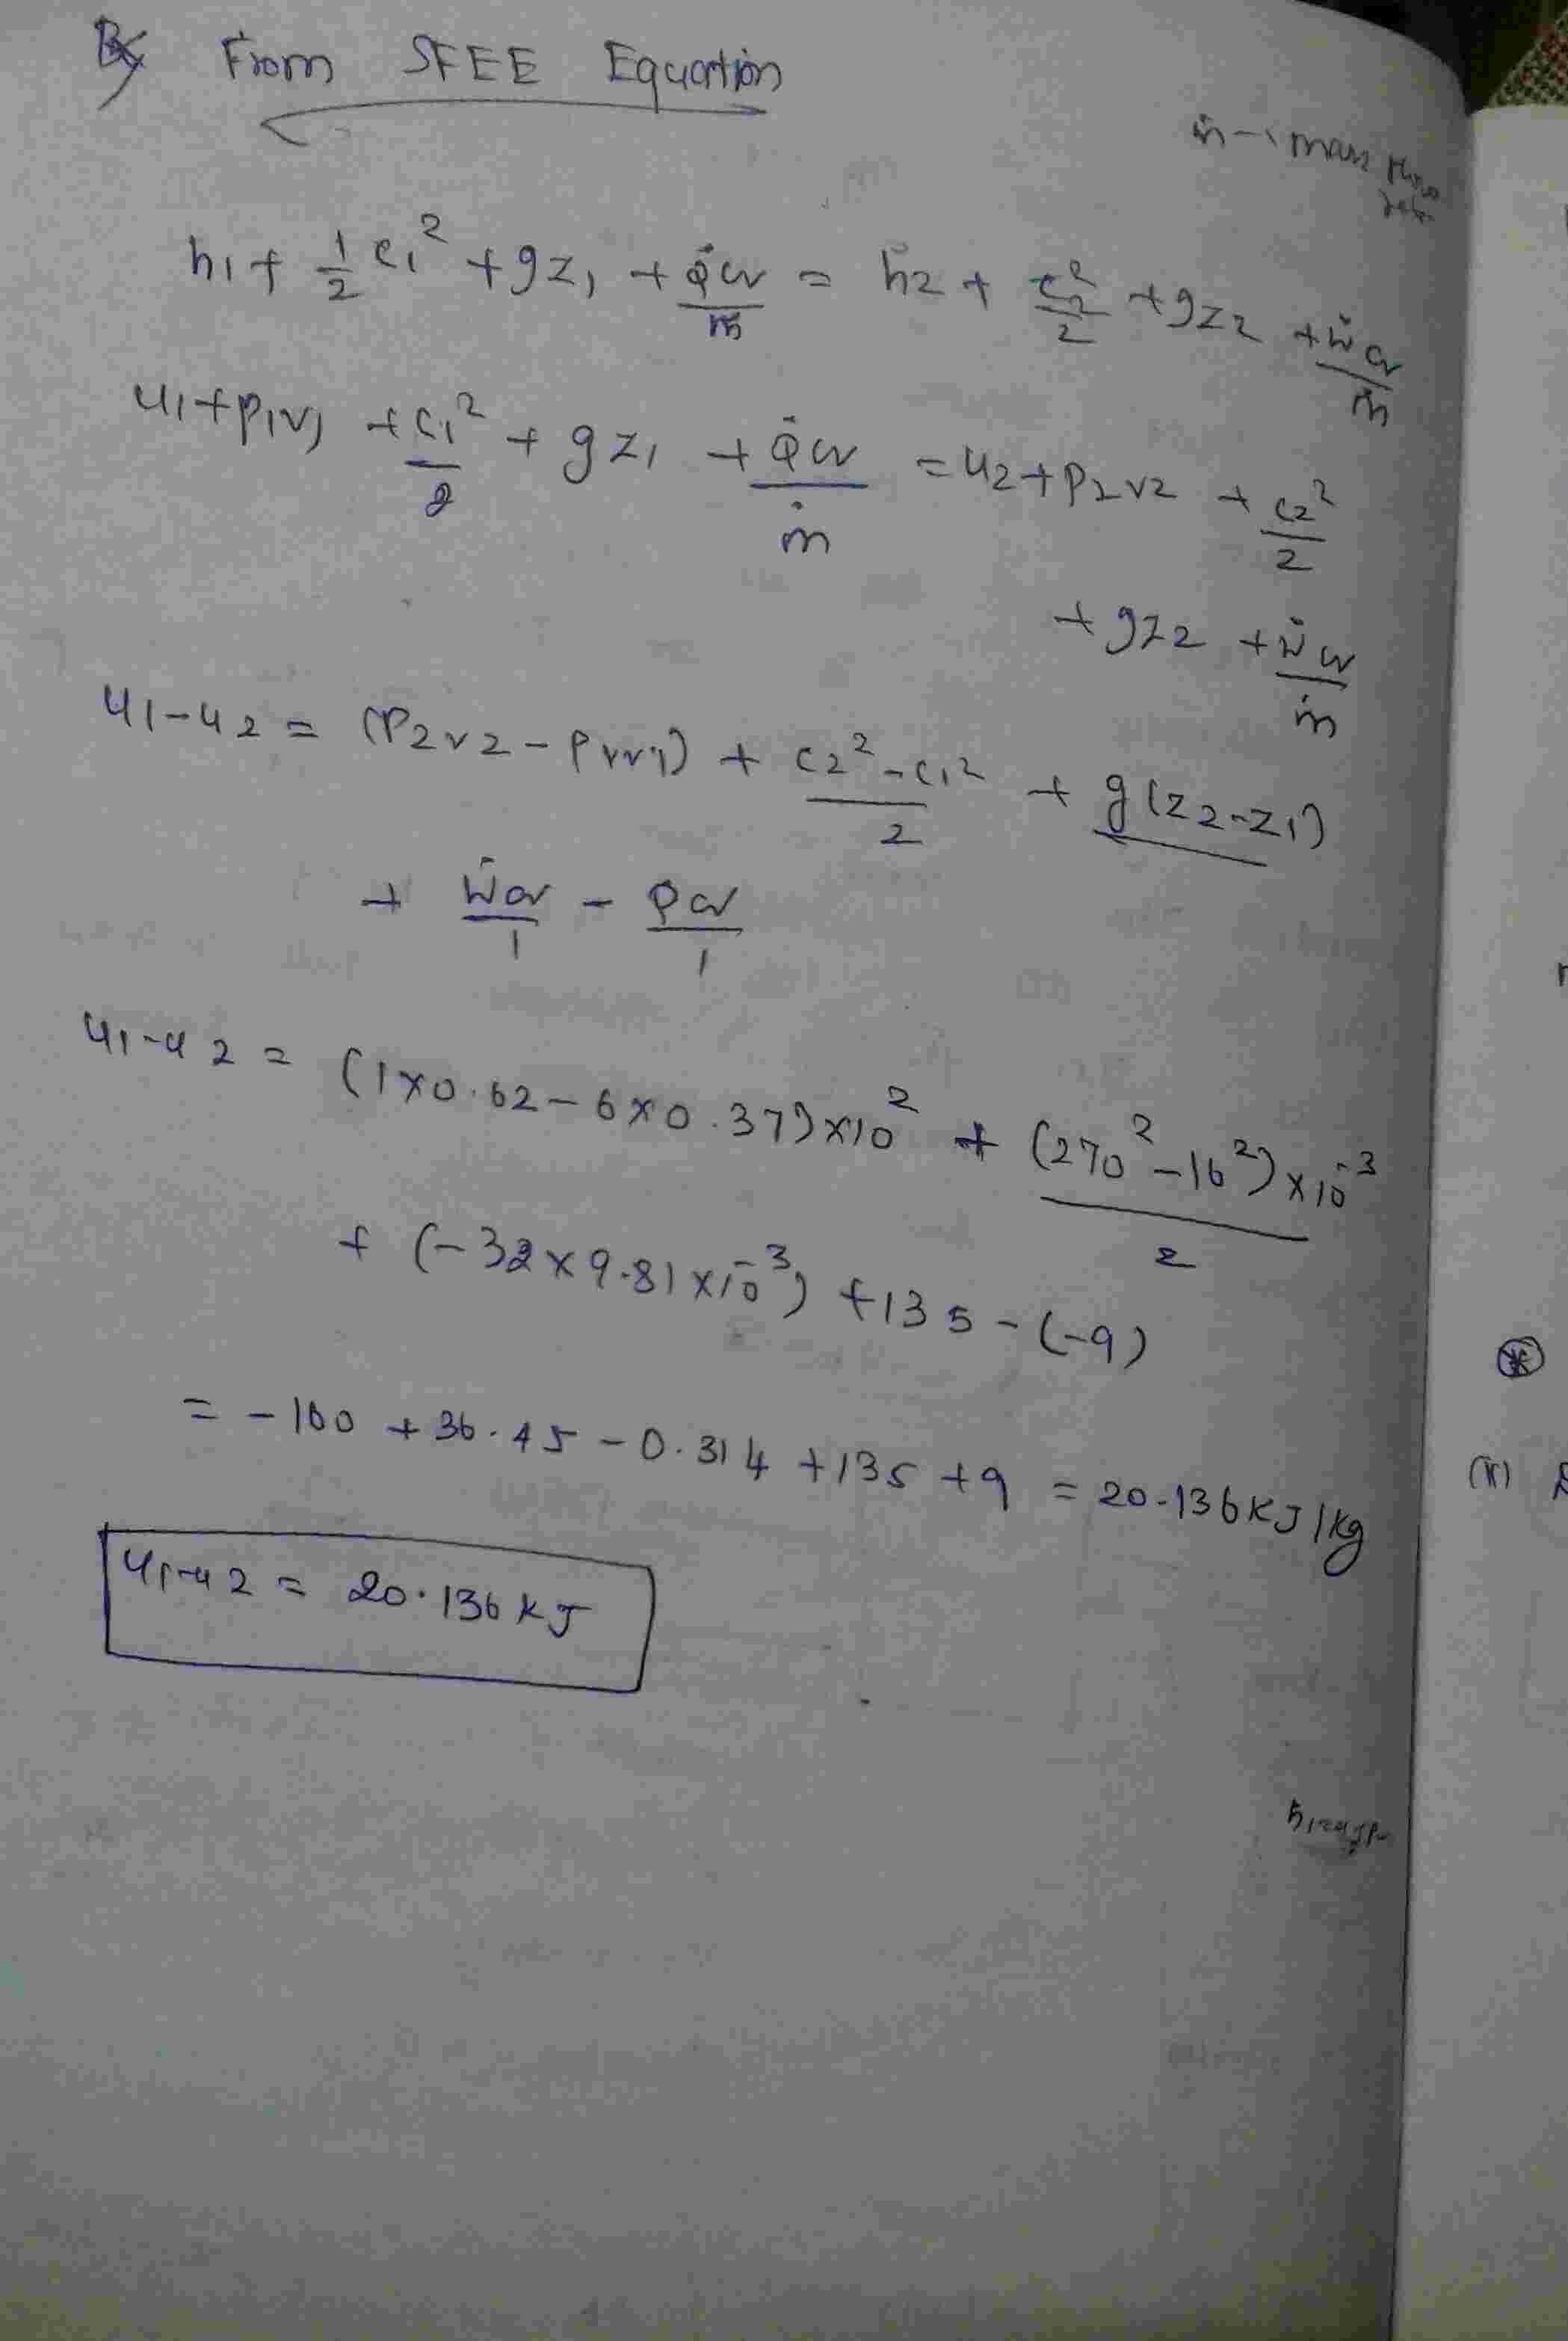 By From SFEE Equation
ṁ → mass flow rate
h1 + 1/2 c1² + gz1 + Q̇cv/ṁ = h2 + c2²/2 + gz2 + Ẇcv/ṁ
u1+p1v1 + c1²/2 + gz1 + Q̇cv/ṁ = u2+p2v2 + c2²/2
+ gz2 + Ẇcv/ṁ
u1-u2 = (P2v2-P1v1) + c2²-c1²/2 + g(z2-z1)
+ Ẇcv/1 - Qcv/1
u1-u2 = (1×0.62-6×0.37)×10² + (270²-16²)×10⁻³/2
+ (-32×9.81×10⁻³) +135-(-9)
= -160 +36.45 -0.314 +135 +9 = 20.136KJ/kg
u1-u2 = 20.136 KJ